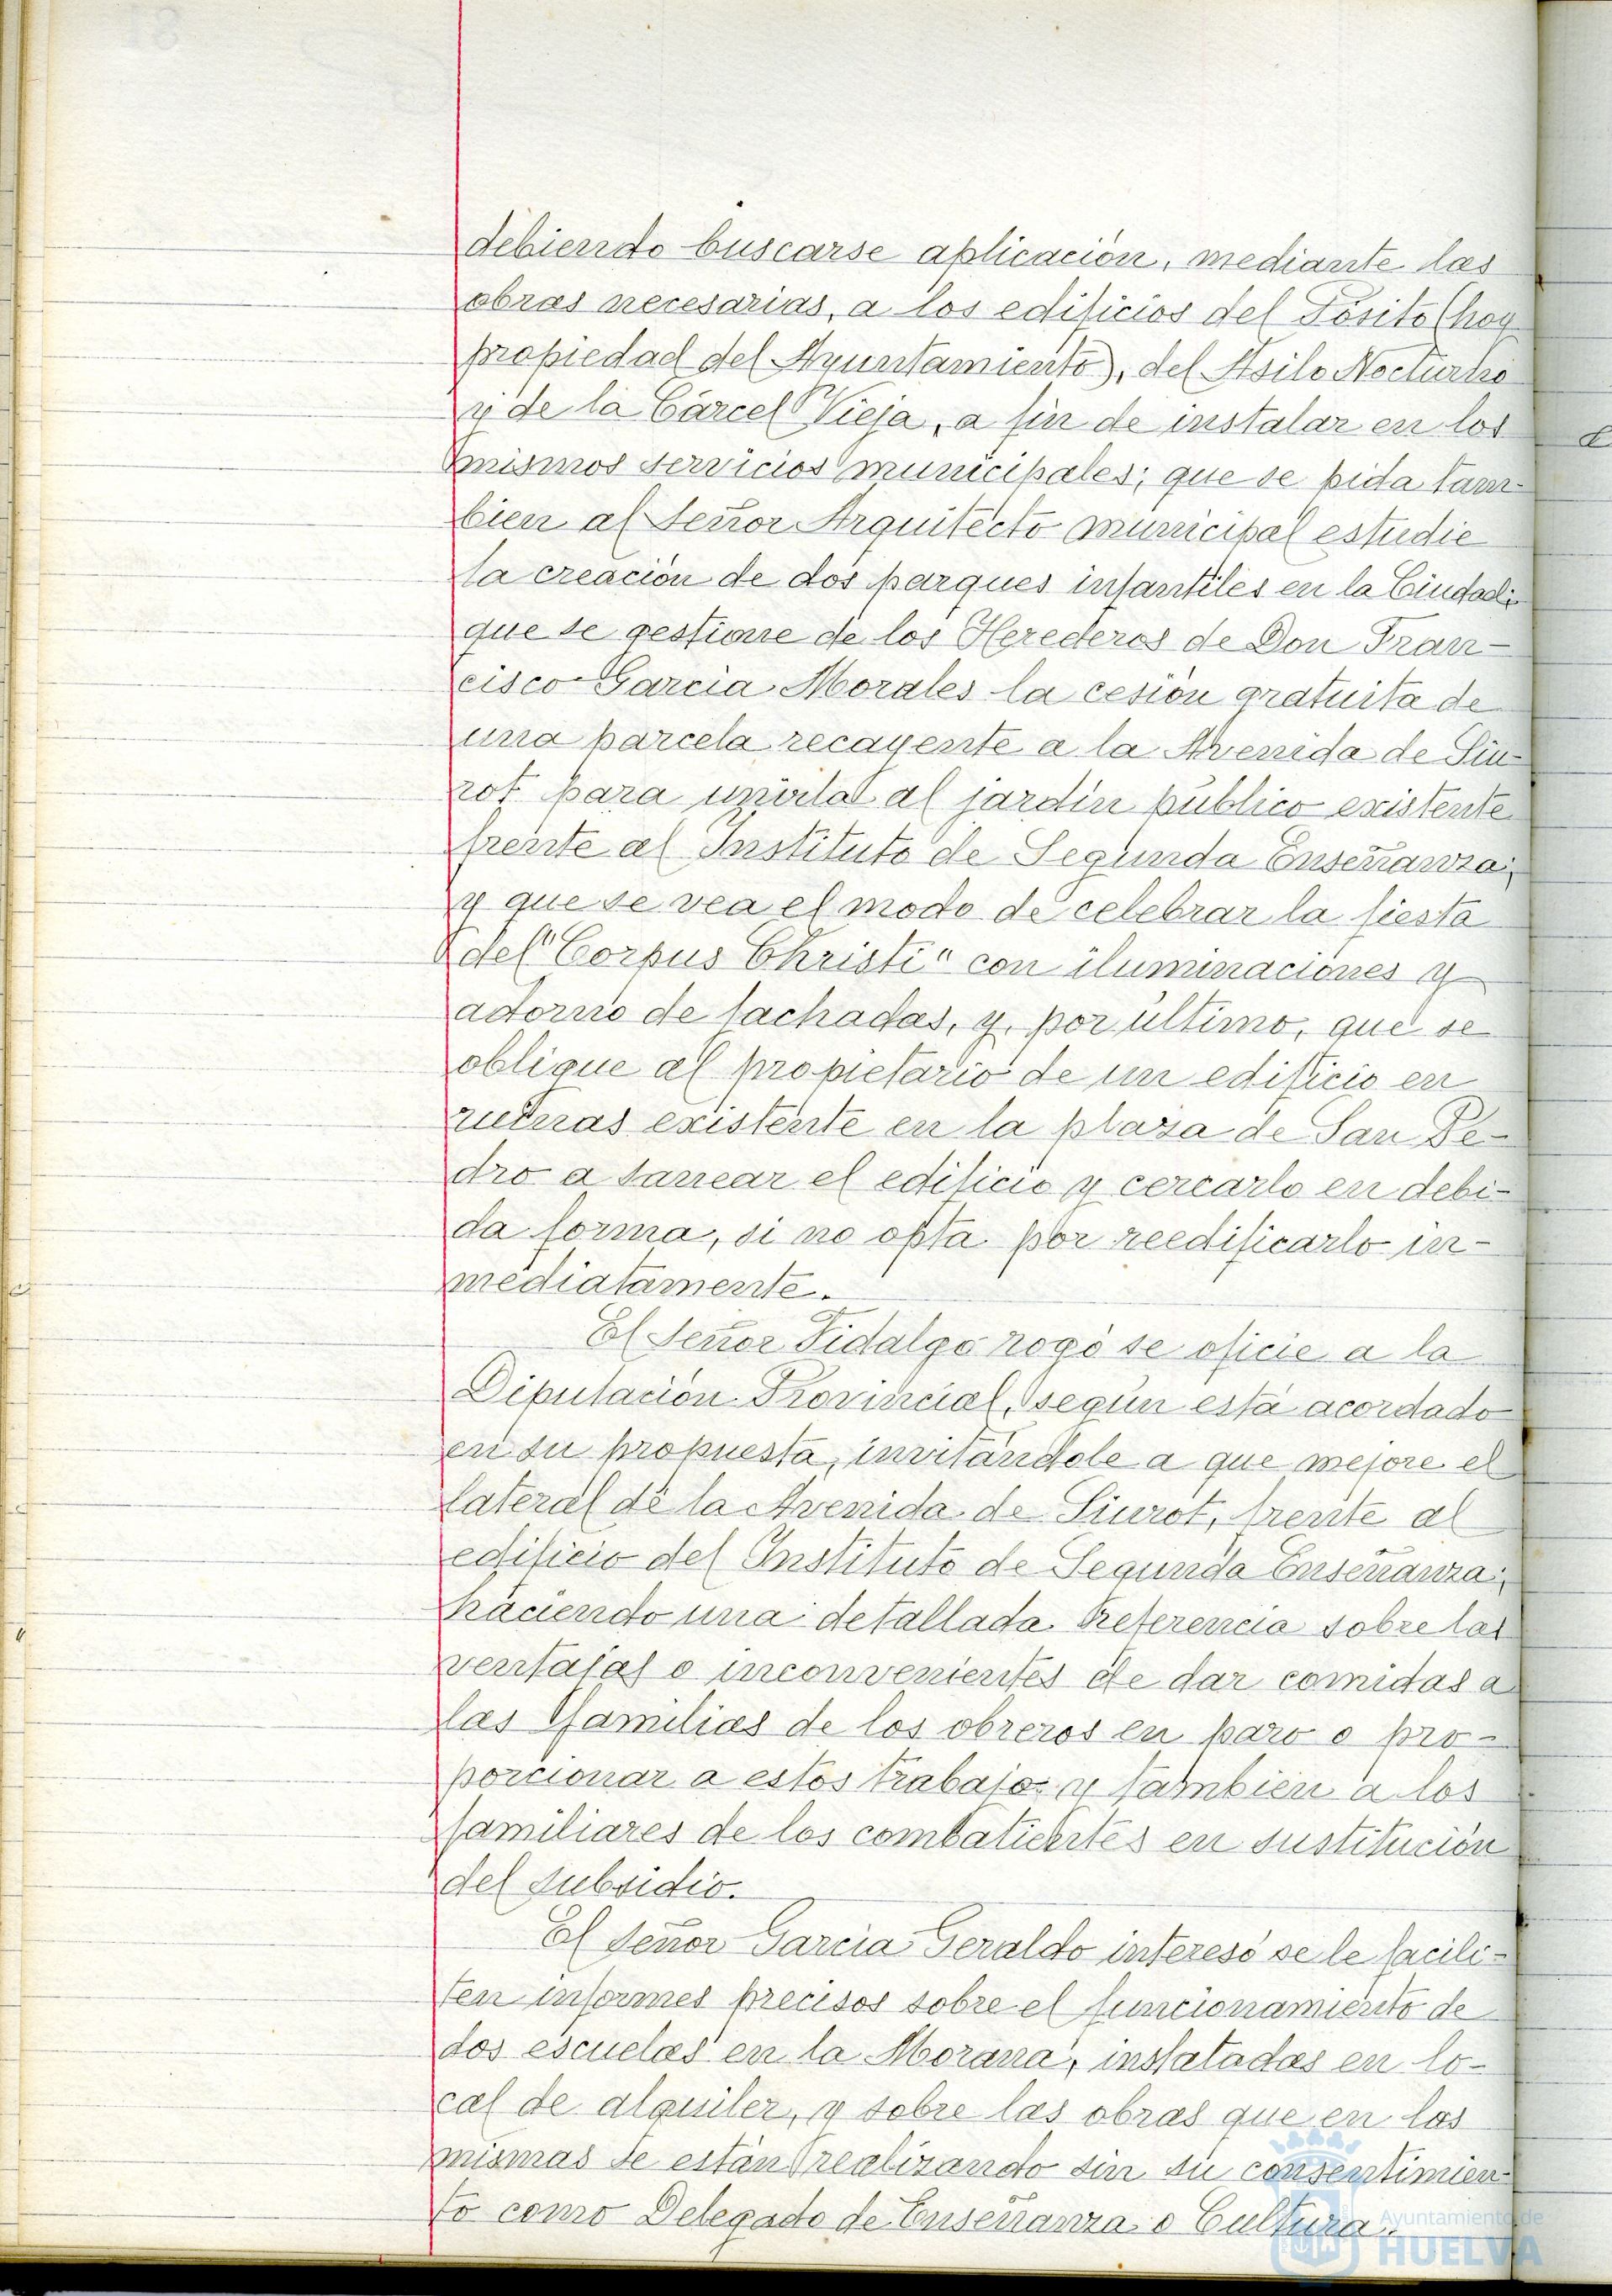 debiendo buscarse aplicación, mediante las
obras necesarias, a los edificios del Pósito (hoy
propiedad del Ayuntamiento), del Asilo Nocturno
y de la Cárcel Vieja, a fin de instalar en los
mismos servicios municipales; que se pida tam-
bien al Señor Arquitecto municipal estudie
la creación de dos parques infantiles en la Ciudad;
que se gestione de los Herederos de Don Fran-
cisco García Morales la cesión gratuita de
una parcela recayente a la Avenida de Siu-
rot para unirla al jardín público existente
frente al Instituto de Segunda Enseñanza;
y que se vea el modo de celebrar la fiesta
del "Corpus Christi" con iluminaciones y
adorno de fachadas, y, por último, que se
obligue al propietario de un edificio en
ruinas existente en la plaza de San Pe-
dro a sanear el edificio y cercarlo en debi-
da forma, si no opta por reedificarlo in-
mediatamente.
El Señor Fidalgo rogó se oficie a la
Diputación Provincial, según está acordado
en su propuesta, invitándole a que mejore el
lateral de la Avenida de Siurot, frente al
edificio del Instituto de Segunda Enseñanza;
haciendo una detallada referencia sobre las
ventajas o inconvenientes de dar comidas a
las familias de los obreros en paro o pro-
porcionar a estos trabajo y tambien a los
familiares de los combatientes en sustitución
del subsidio.
El Señor García Geraldo interesó se le facili-
ten informes precisos sobre el funcionamiento de
dos escuelas en la Morana, instaladas en lo-
cal de alquiler, y sobre las obras que en las
mismas se están realizando sin su consentimien-
to como Delegado de Enseñanza o Cultura.
Ayuntamiento de
HUELVA